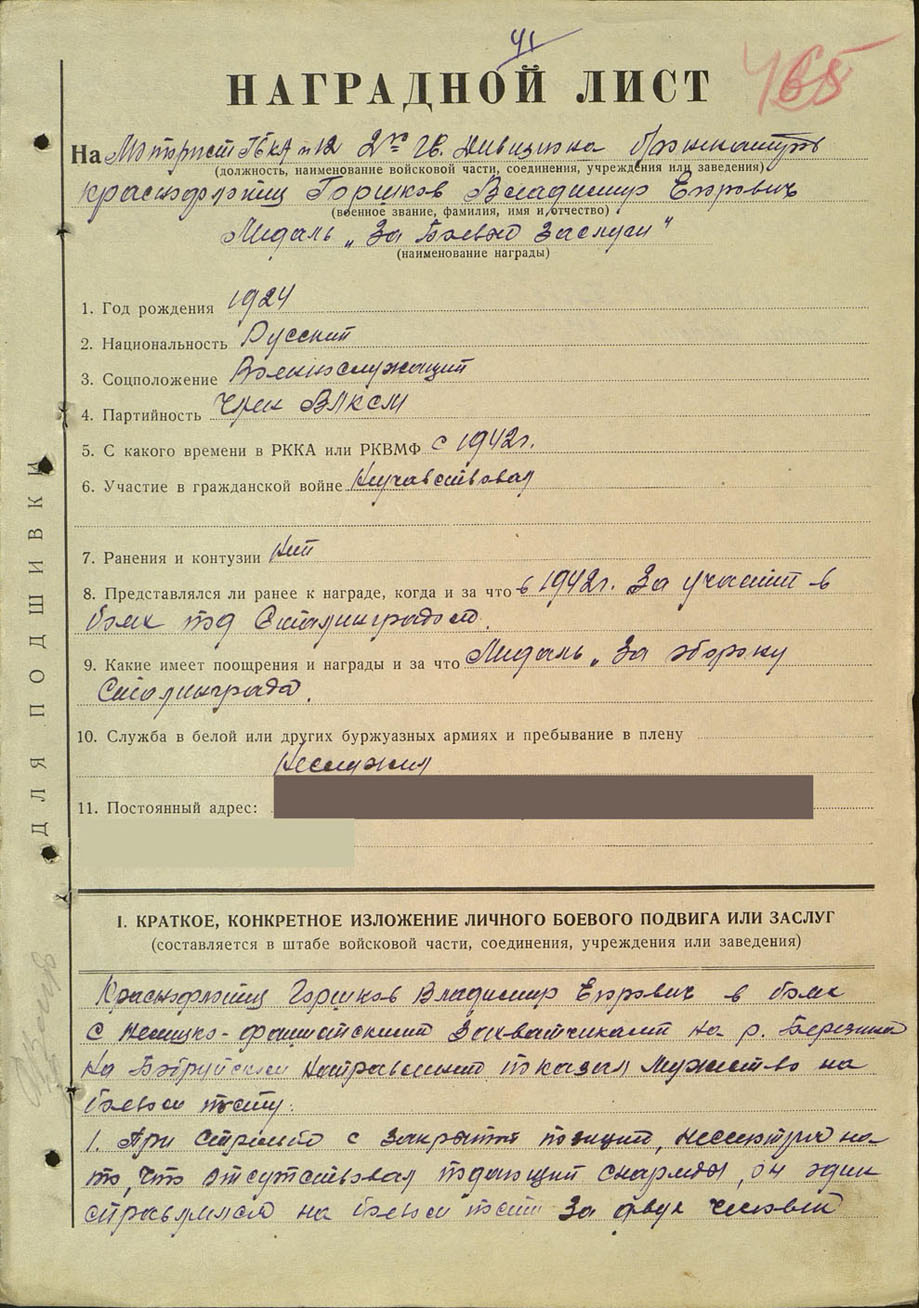 41
465
НАГРАДНОЙ ЛИСТ
На Моторист БКА №12 2го Гв. Дивизиона бронекатеров
(должность, наименование войсковой части, соединения, учреждения или заведения)
краснофлотец Горшков Владимир Егорович
(военное звание, фамилия, имя и отчество)
Медаль „За Боевые Заслуги"
(наименование награды)
1. Год рождения 1924
2. Национальность Русский
3. Соцположение Военнослужащий
4. Партийность Член ВЛКСМ
5. С какого времени в РККА или РКВМФ с 1942г.
6. Участие в гражданской войне Неучавствовал
7. Ранения и контузии Нет
8. Представлялся ли ранее к награде, когда и за что в 1942г. За участие в
боях под Сталинградом.
9. Какие имеет поощрения и награды и за что Медаль „За оборону
Сталинграда.
10. Служба в белой или других буржуазных армиях и пребывание в плену
Неслужил
11. Постоянный адрес:
ДЛЯ ПОДШИВКИ
I. КРАТКОЕ, КОНКРЕТНОЕ ИЗЛОЖЕНИЕ ЛИЧНОГО БОЕВОГО ПОДВИГА ИЛИ ЗАСЛУГ
(составляется в штабе войсковой части, соединения, учреждения или заведения)
Краснофлотец Горшков Владимир Егорович в боях
с Немецко-фашистскими Захватчиками на р. Березина
на Бобруйском направлении показал мужество на
боевом посту.
1. При стрельбе с закрытых позиций, несмотря на
то, что отсутствовал подающий снаряды, он один
справлялся на боевом посту за двух человек